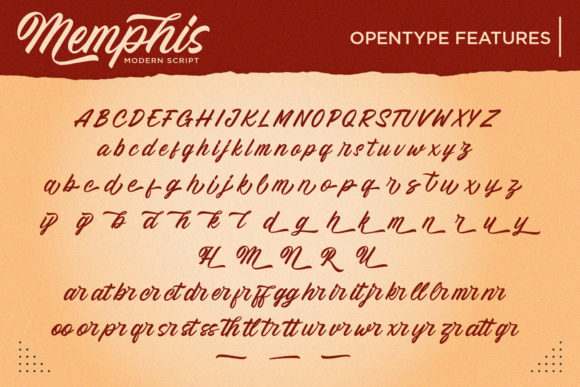 Memphis
MODERN SCRIPT
OPENTYPE FEATURES
A B C D E F G H I J K L M N O P Q R S T U V W X Y Z
a b c d e f g h i j k l m n o p q r s t u v w x y z
a b c d e f g h i j k l m n o p q r s t u v w x y z
d g h k m n r u y
H M N R U
ar at br cr ct dr er fr ff gg hr ir it jr kr ll lr mr nr
oo or pr qr sr st ss th tl tr tt ur vr wr xr yr zr att qr